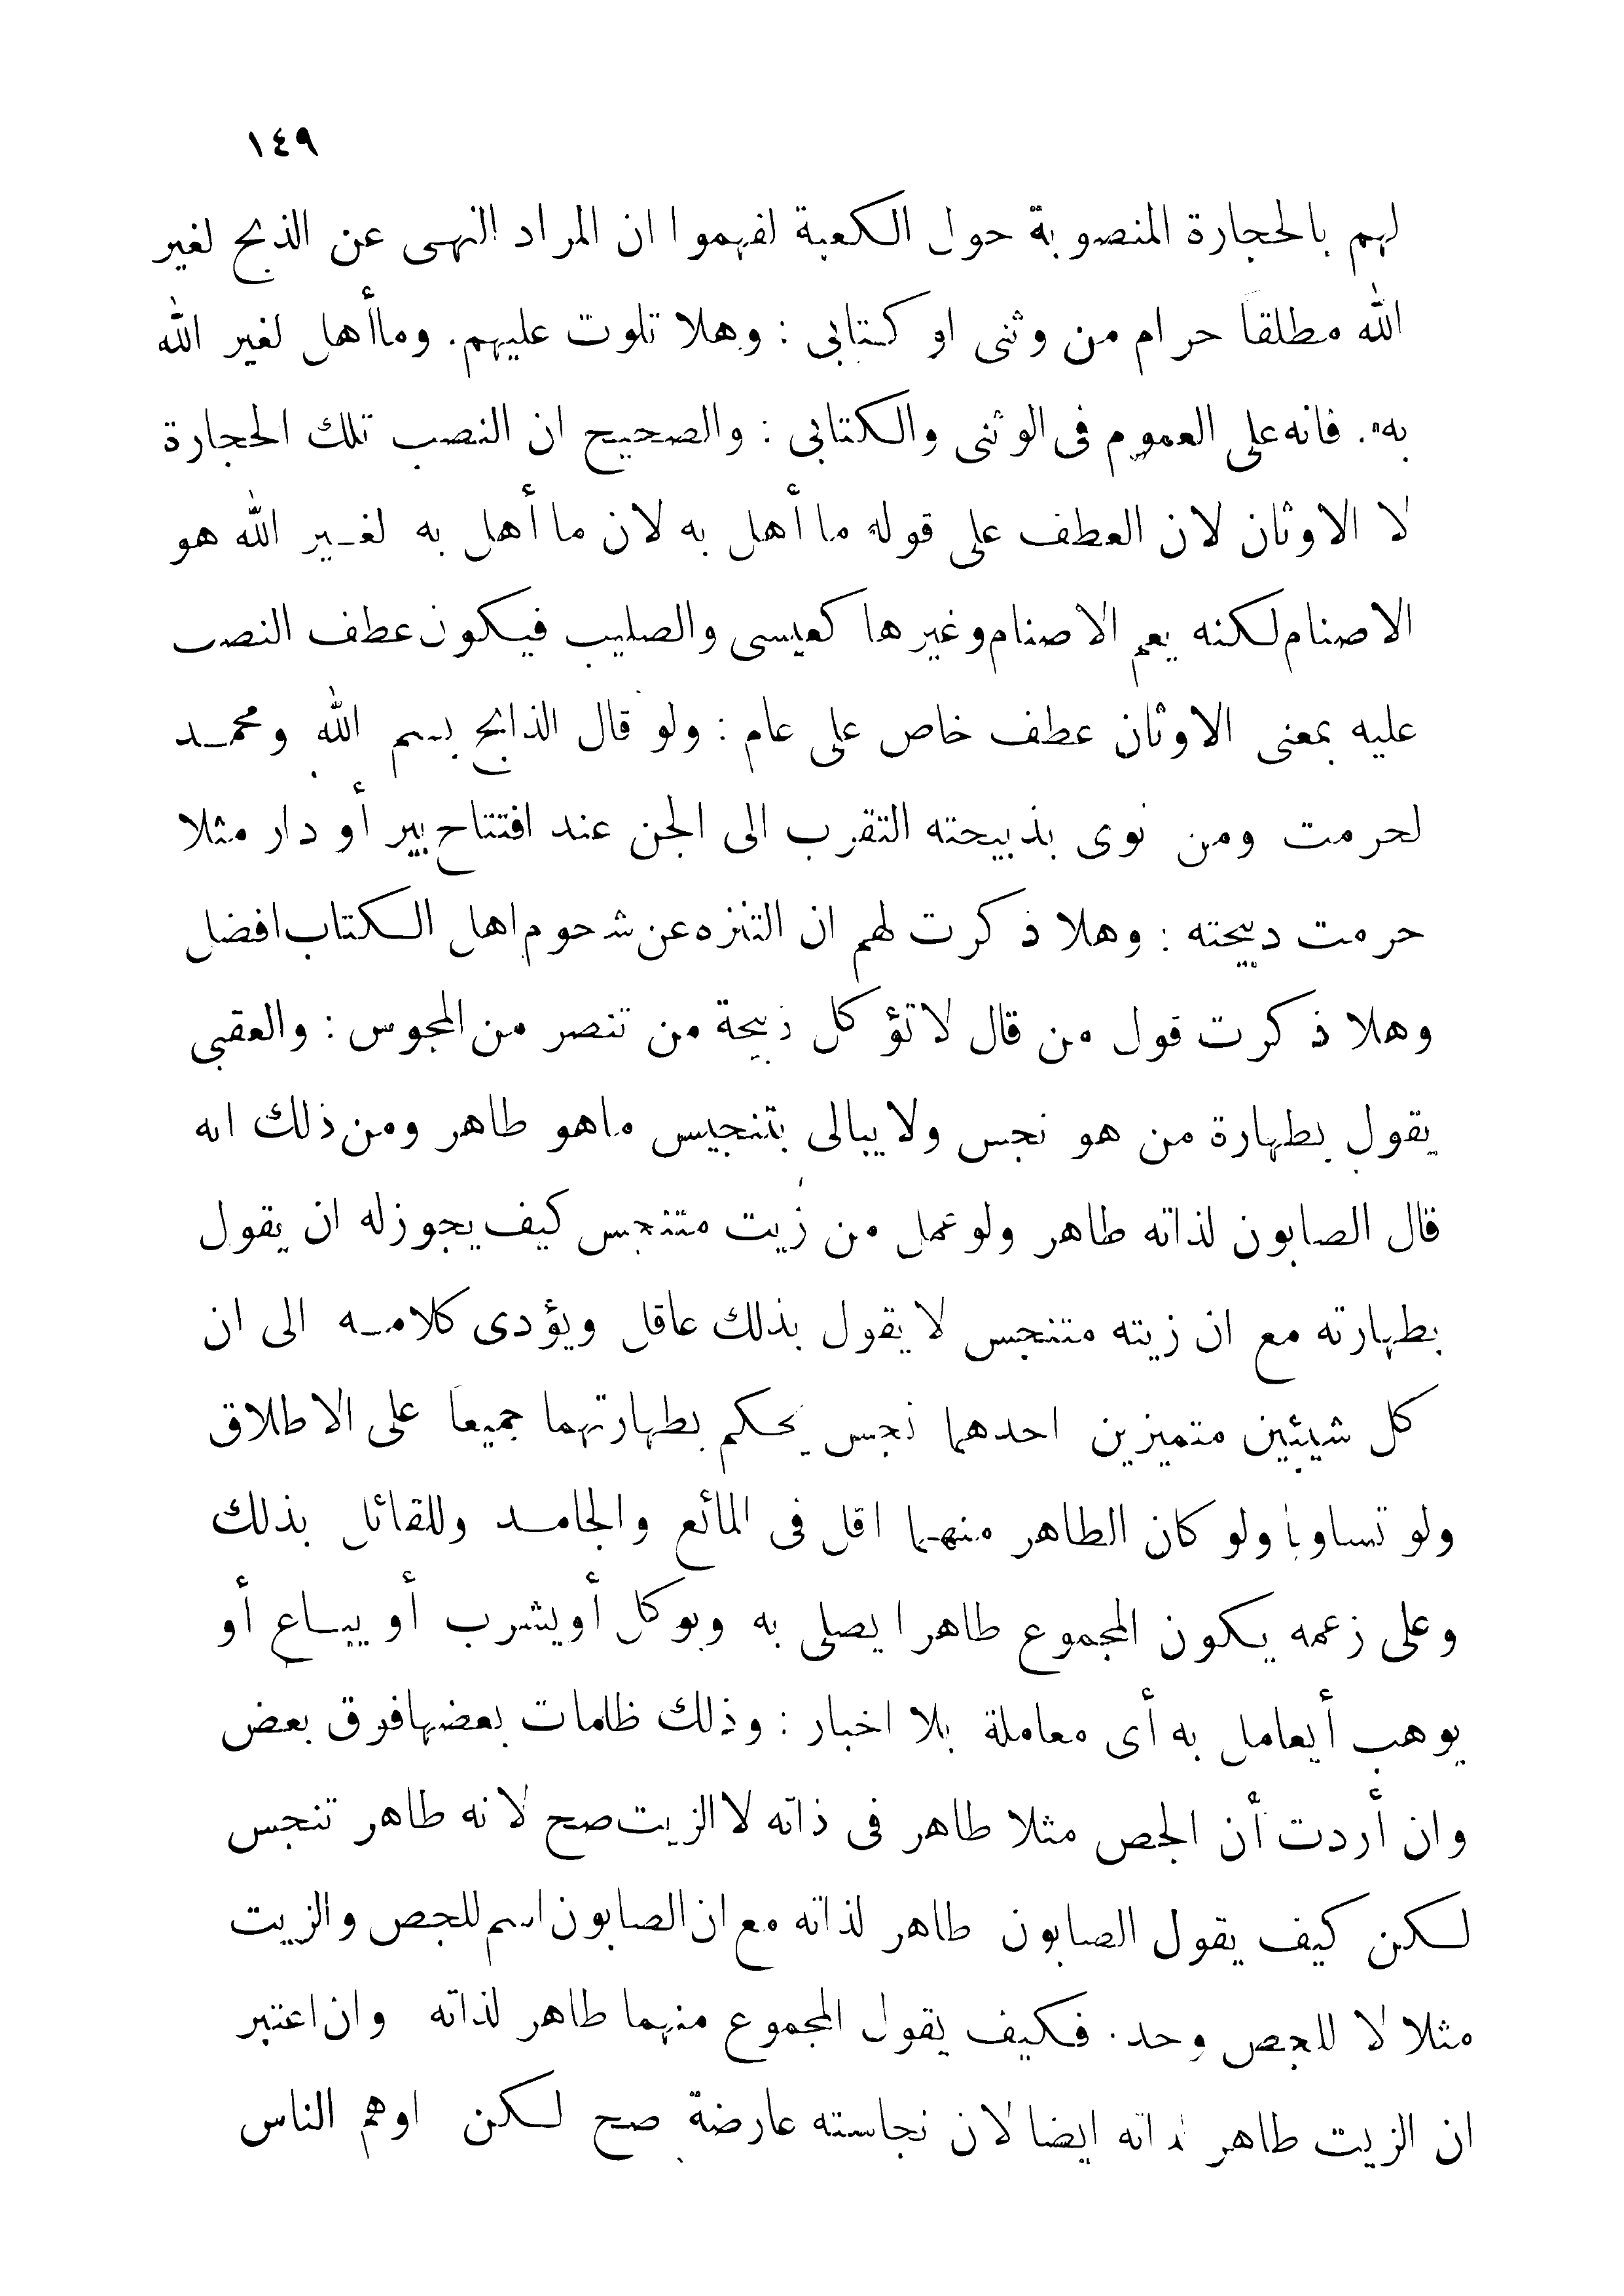 ١٤٩
لهم بالحجارة المنصوبة حول الكعبة لفهموا ان المراد النهى عن الذبح لغير
الله مطلقاً حرام من وثنى او كتابى : وهلا تلوت عليهم. وماأهل لغير الله
به». فانه على العموم فى الوثنى والكتابى : والصحيح ان النصب تلك الحجارة
لا الاوثان لان العطف على قوله ما أهل به لان ما أهل به لغير الله هو
الاصنام لكنه يعم الاصنام وغيرها كعيسى والصليب فيكون عطف النصب
عليه بمعنى الاوثان عطف خاص على عام : ولو قال الذابح بسم الله ومحمد
لحرمت ومن نوى بذبيحته التقرب الى الجن عند افتتاح بير أو دار مثلا
حرمت ذبيحته : وهلا ذكرت لهم ان التنزه عن شحوم اهل الكتاب افضل
وهلا ذكرت قول من قال لا تؤكل ذبيحة من تنصر من المجوس : والعقبى
يقول بطهارة من هو نجس ولا يبالى بتنجيس ماهو طاهر ومن ذلك انه
قال الصابون لذاته طاهر ولو عمل من زيت متنجس كيف يجوز له ان يقول
بطهارته مع ان زيته متنجس لا يقول بذلك عاقل ويؤدى كلامه الى ان
كل شيئين متميزين احدهما نجس يحكم بطهارتهما جميعاً على الاطلاق
ولو تساويا ولو كان الطاهر منهما اقل فى المائع والجامد وللقائل بذلك
وعلى زعمه يكون المجموع طاهرا يصلى به ويوكل أو يشرب أو يباع أو
يوهب أيعامل به أى معاملة بلا اخبار : وذلك ظلمات بعضها فوق بعض
وان أردت أن الجص مثلا طاهر فى ذاته لا الزيت صح لانه طاهر تنجس
لكن كيف يقول الصابون طاهر لذاته مع ان الصابون اسم للجص والزيت
مثلا لا للجص وحد. فكيف يقول المجموع منهما طاهر لذاته وان اعتبر
ان الزيت طاهر لذاته ايضا لان نجاسته عارضة صح لكن اوهم الناس